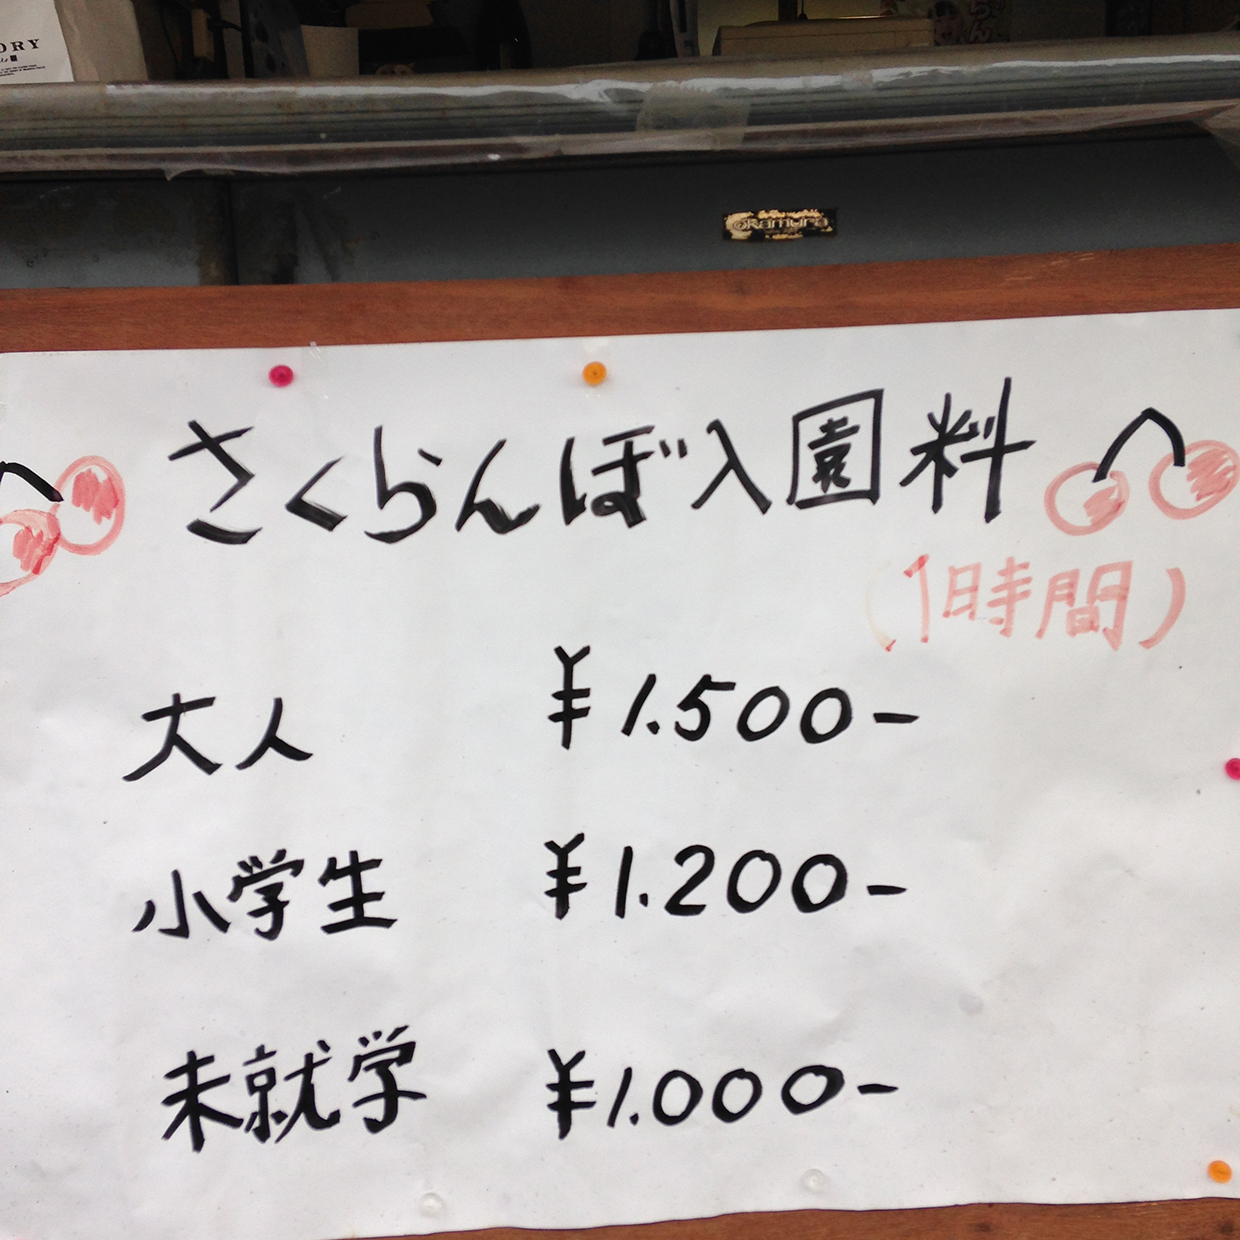 ORY
Okamura
さくらんぼ入園料
(1日時間)
大人 ¥1.500-
小学生 ¥1.200-
未就学 ¥1.000-